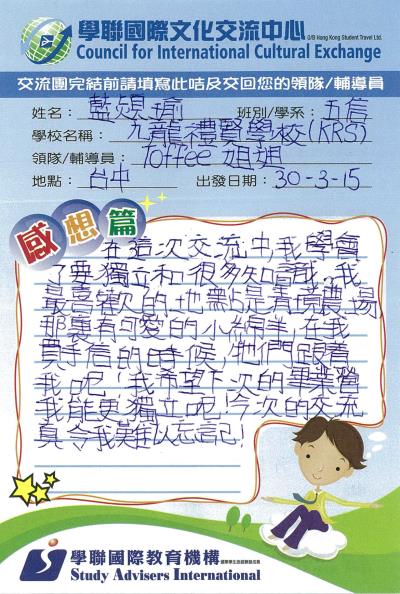 學聯國際文化交流中心
O/B Hong Kong Student Travel Ltd.
Council for International Cultural Exchange
交流團完結前請填寫此咭及交回您的領隊/輔導員
姓名： 藍 瑜 班別/學系： 五信
學校名稱： 九龍禮賢學校(KRS)
領隊/輔導員： Toffee 姐姐
地點： 台中 出發日期： 30-3-15
感想篇
在這次交流中,我學會
了要獨立和很多知識,我
最喜歡的地點是清境農場,
那裏有可愛的小綿羊,在我
買手信的時候,牠們跟着
我呢!我希望下次的畢業營
我能更獨立呢!今次的交流
真令我難以忘忘記!
學聯國際教育機構
Study Advisers International